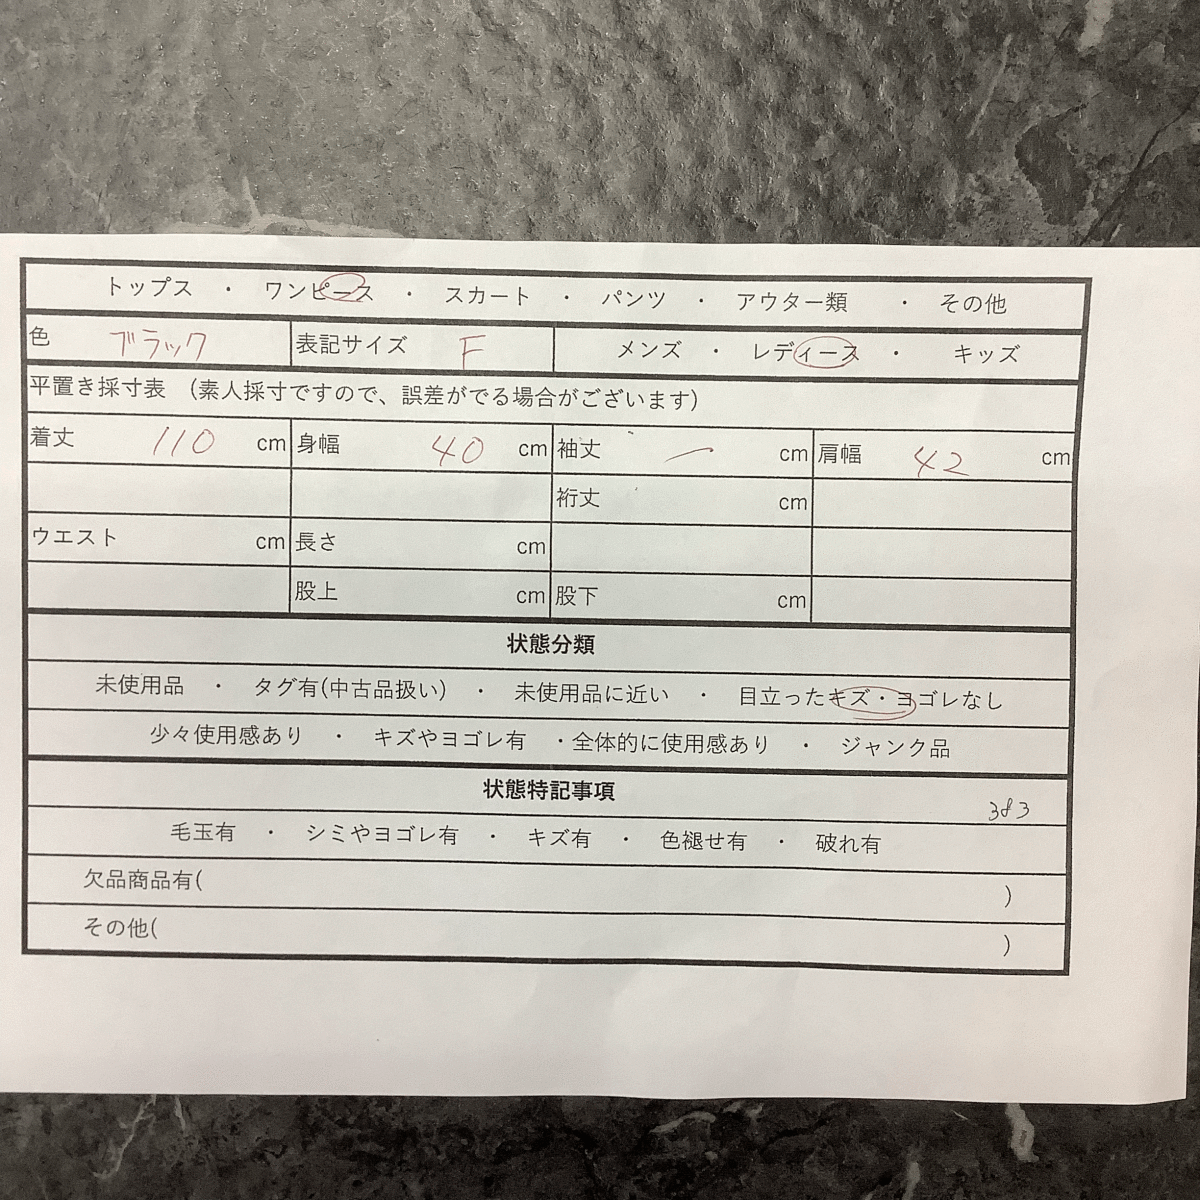 トップス ・ ワンピース ・ スカート ・ パンツ ・ アウター類 ・ その他
色 ブラック 表記サイズ F メンズ ・ レディース ・ キッズ
平置き採寸表 (素人採寸ですので、誤差がでる場合がございます)
着丈 110 cm 身幅 40 cm 袖丈 ー cm 肩幅 42 cm
裄丈 cm
ウエスト cm 長さ cm
股上 cm 股下 cm
状態分類
未使用品 ・ タグ有(中古品扱い) ・ 未使用品に近い ・ 目立ったキズ・ヨゴレなし
少々使用感あり ・ キズやヨゴレ有 ・全体的に使用感あり ・ ジャンク品
状態特記事項
383
毛玉有 ・ シミやヨゴレ有 ・ キズ有 ・ 色褪せ有 ・ 破れ有
欠品商品有( )
その他( )